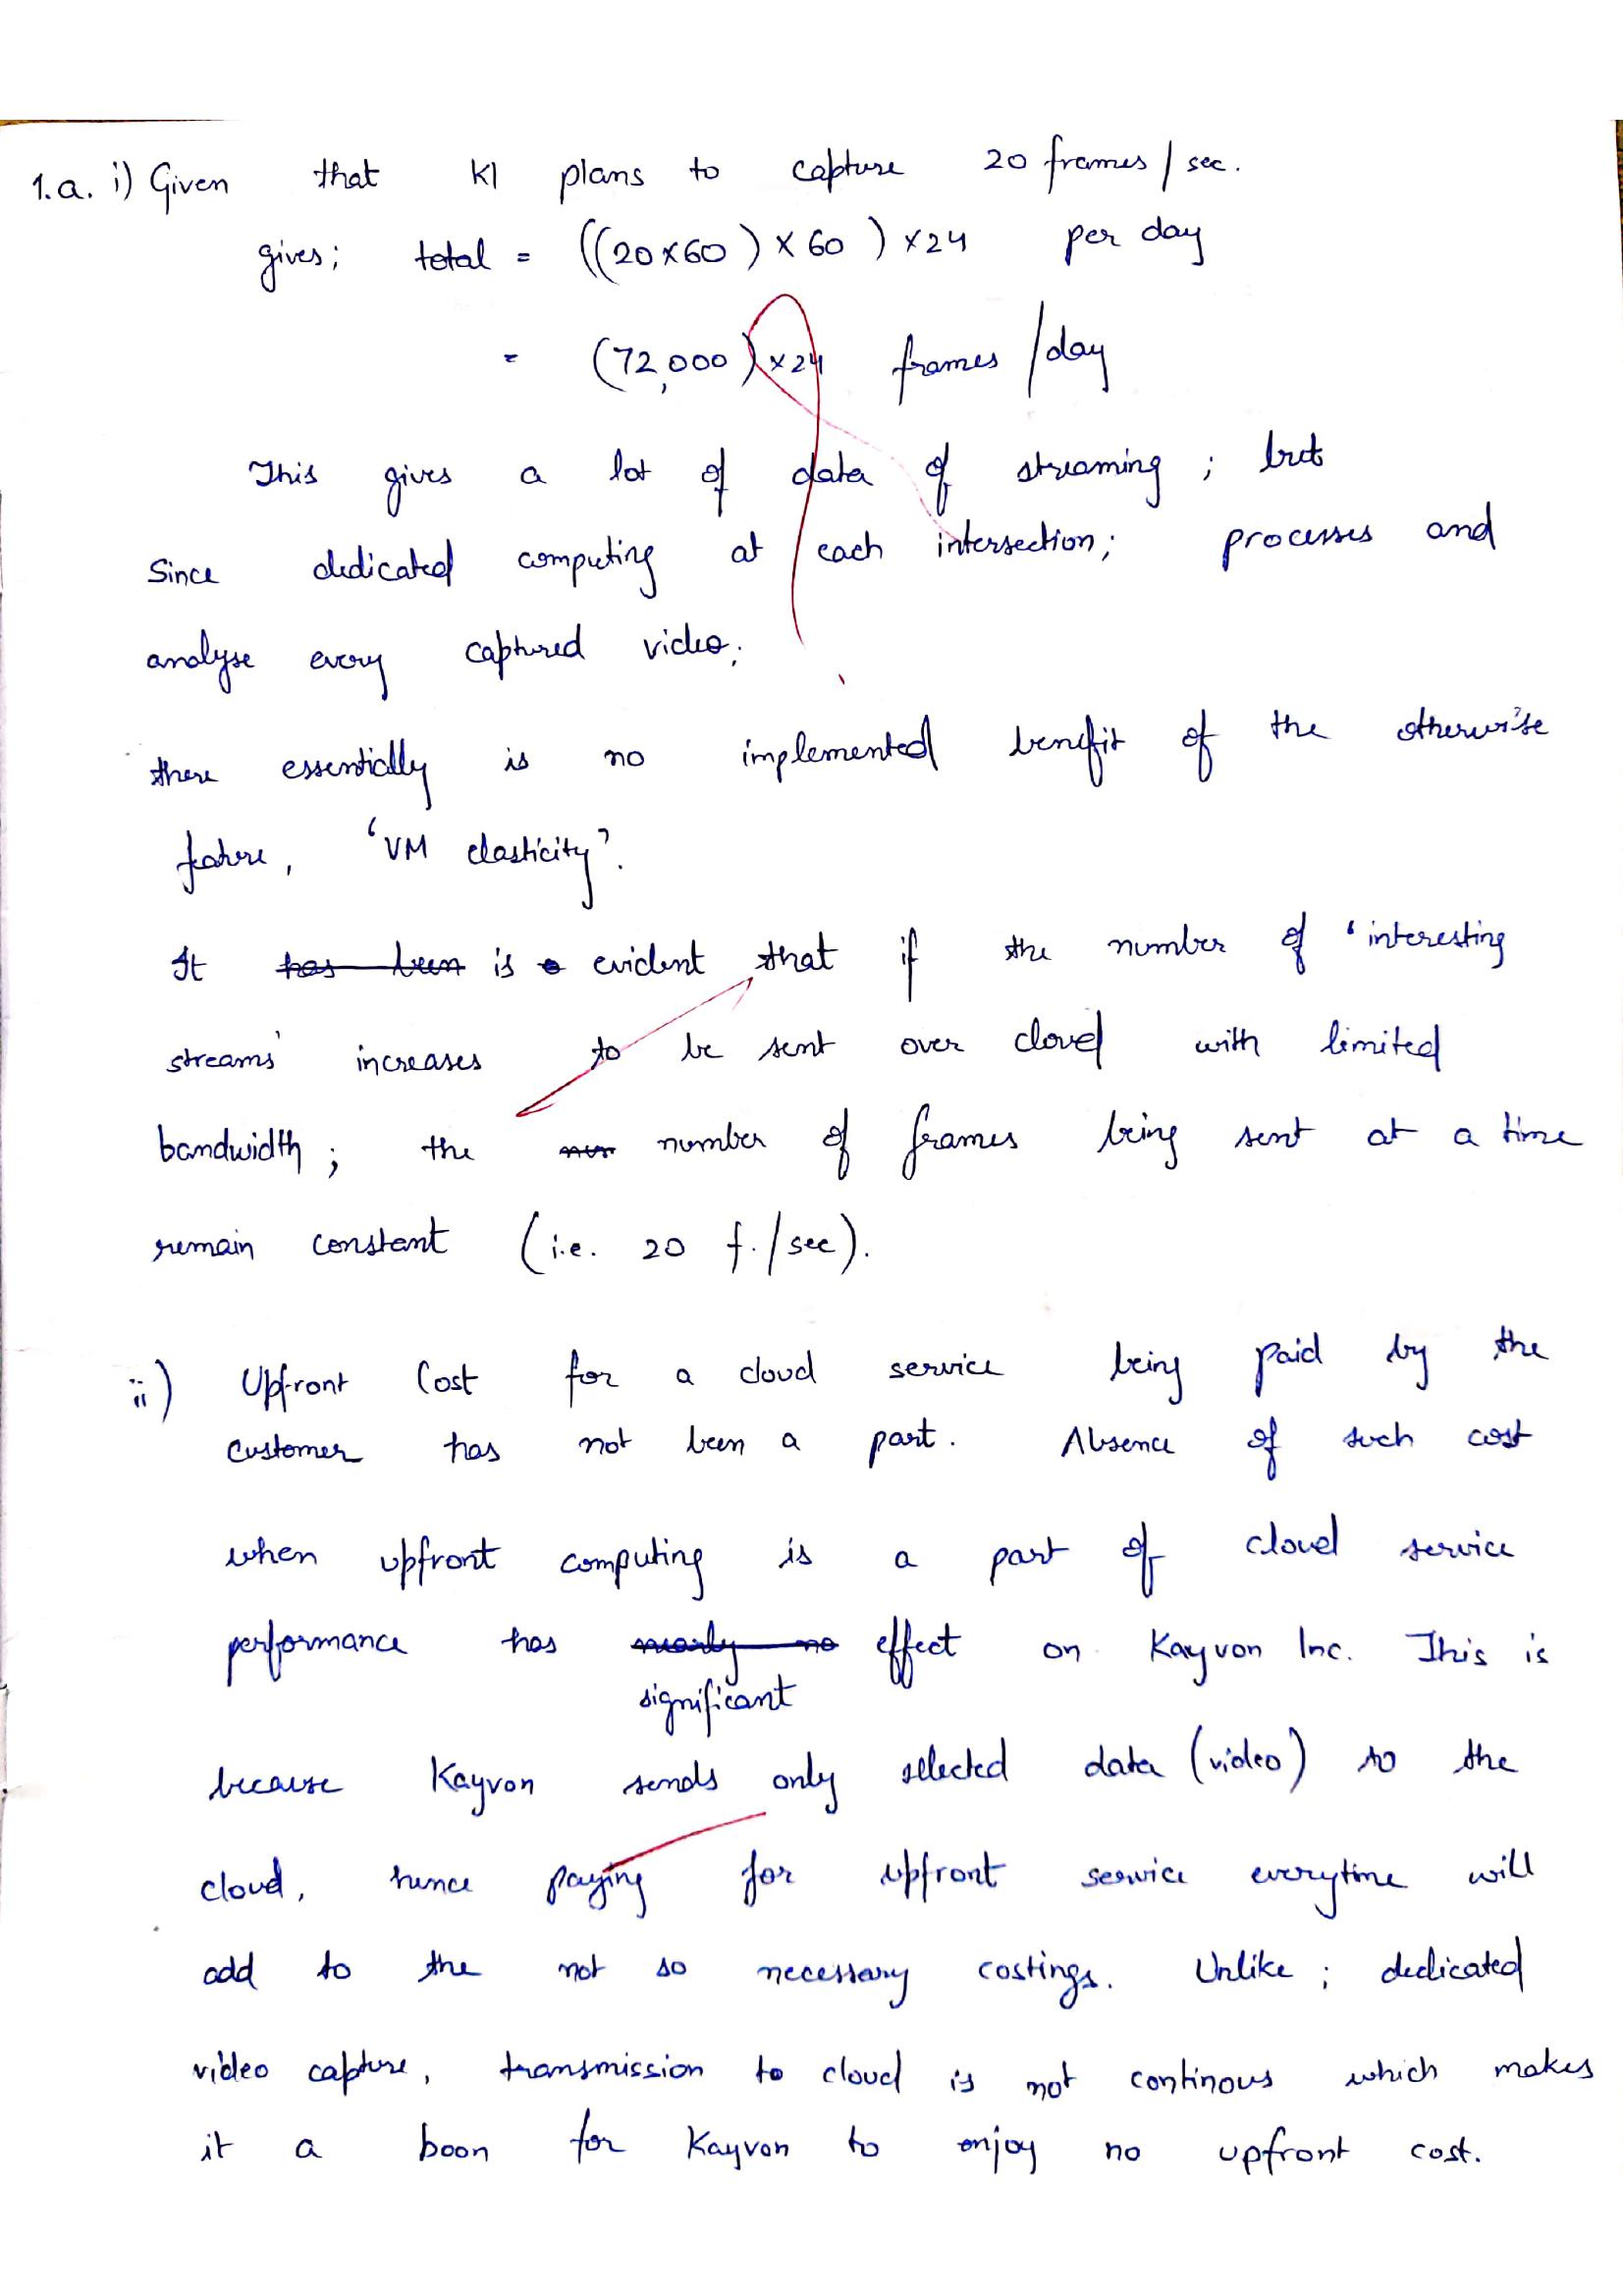 1.a. i) Given that KI plans to capture 20 frames / sec.
gives; total = ((20×60) × 60) ×24 per day
= (72,000) ×24 frames / day
This gives a lot of data of streaming; but
Since dedicated computing at each intersection; processes and
analyse every captured video;
there essentially is no implemented benefit of the otherwise
feature, 'VM elasticity'.
It has been is a evident that if the number of 'interesting
streams' increases to be sent over cloud with limited
bandwidth; the num number of frames being sent at a time
remain constant (i.e. 20 f./sec).
ii) Upfront Cost for a cloud service being paid by the
customer has not been a part. Absence of such cost
when upfront computing is a part of cloud service
performance has nearly no effect on Kayvon Inc. This is
significant
because Kayvon sends only selected data (video) to the
cloud, hence paying for upfront service everytime will
add to the not so necessary costings. Unlike; dedicated
video capture, transmission to cloud is not continous which makes
it a boon for Kayvon to enjoy no upfront cost.